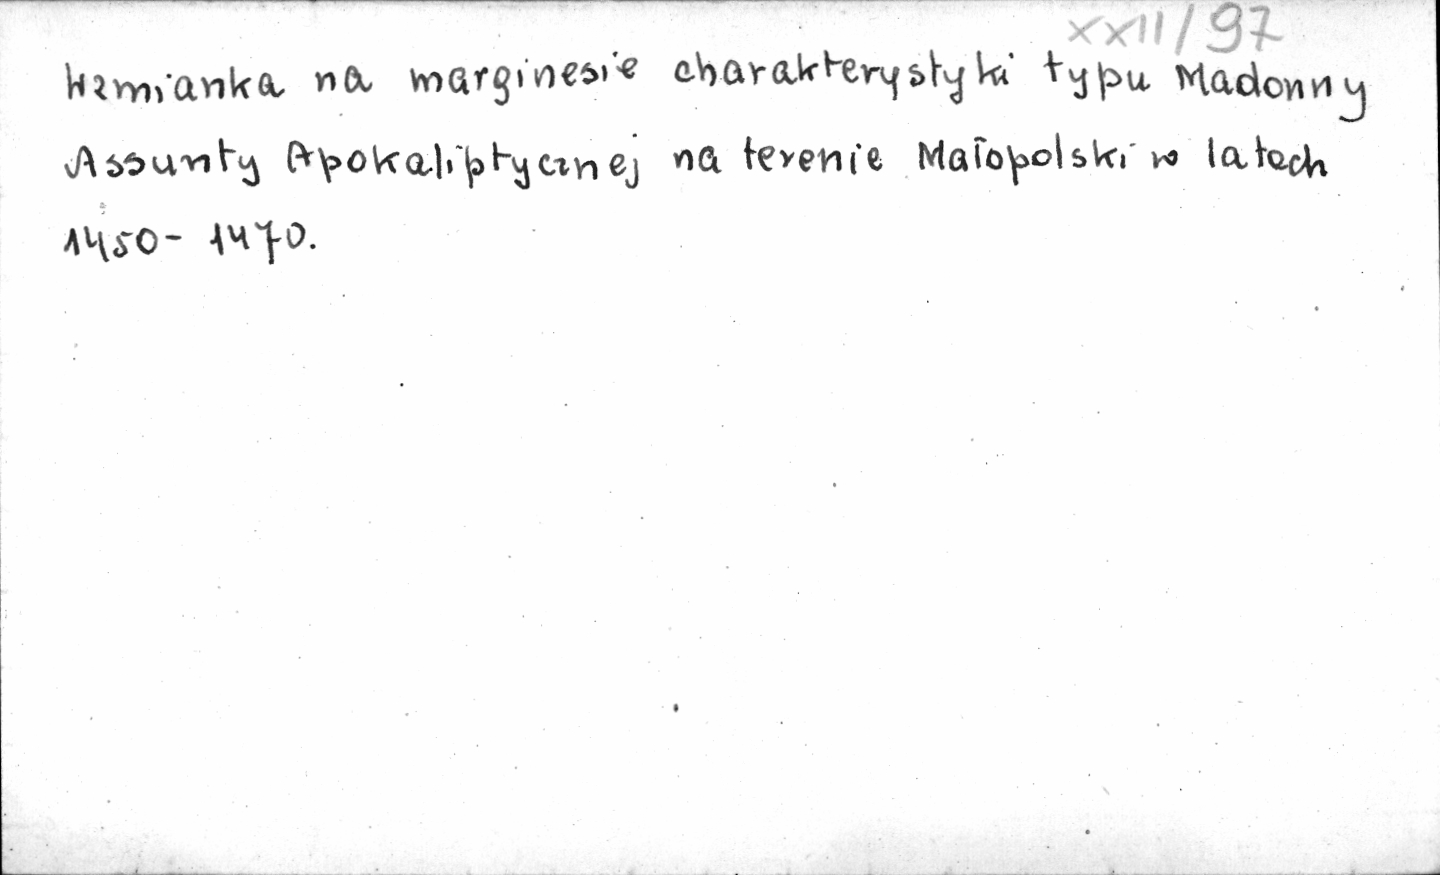 XXII/97
Wzmianka na marginesie charakterystyki typu Madonny
Assunty Apokaliptycznej na terenie Małopolski w latach
1450- 1470.